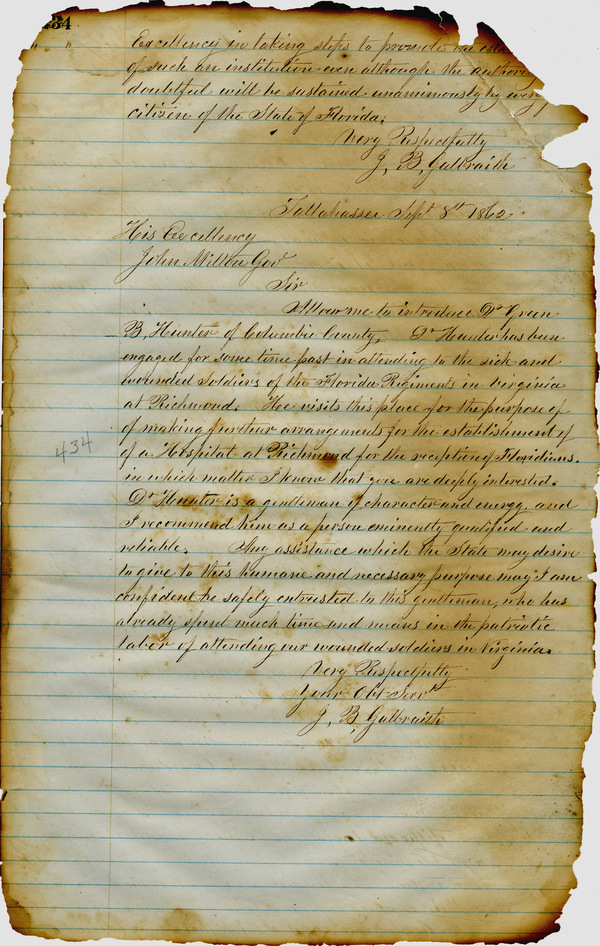 434
Excellency in taking steps to promote the
of such an institution even although the
doubtful will be sustained unanimously by every
citizen of the State of Florida.
Very Respectfully
J. B. Galbraith
Tallahassee Sept 8th 1862
His Excellency
John Milton Gov
Sir
Allow me to introduce Dr Green
B, Hunter of Columbia County, Dr Hunter has been
engaged for some time past in attending to the sick and
wounded soldiers of the Florida Regiments in Virginia
at Richmond. Hee visits this place for the purpose of
of making further arrangements for the establishment of
of a Hospital at Richmond for the reception of Floridians.
in which matter I know that you are deeply interested.
Dr Hunter is a gentleman of character and energy, and
I recommend him as a person eminently qualified and
reliable. Any assistance which the State may desire
to give to this humane and necessary purpose may I am
confident be safely entrusted to this gentleman, who has
already spent much time and means in the patriotic
labor of attending our wounded soldiers in Virginia.
Very Respectfully
Your Obt Servt
J, B, Galbraith
434